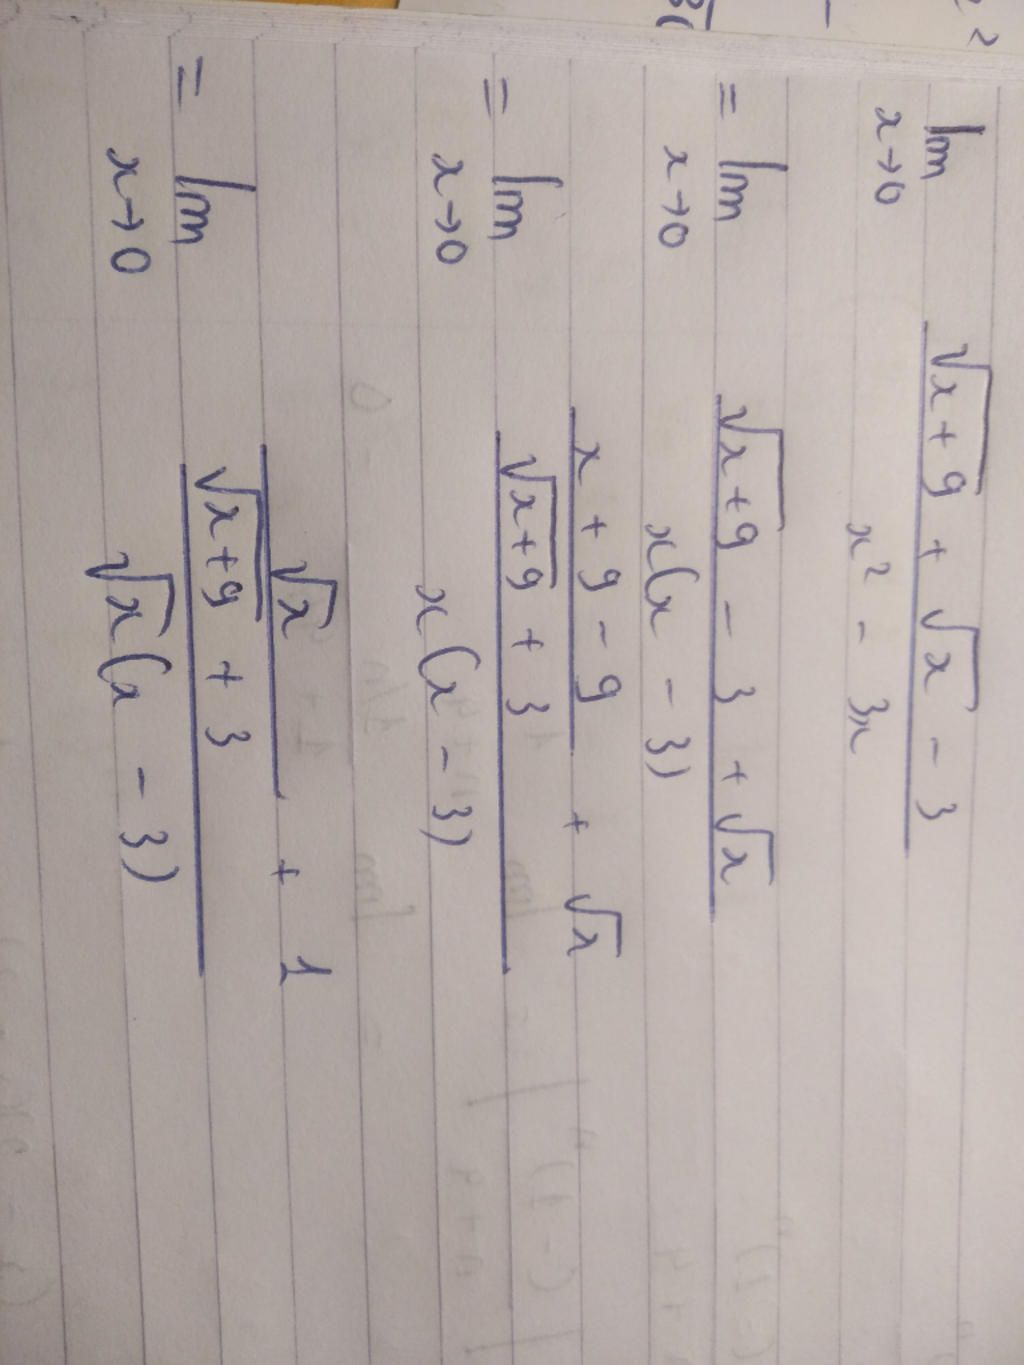 lim x→0 (√(x+9) + √x - 3) / (x² - 3x)
= lim x→0 (√(x+9) - 3 + √x) / (x(x - 3))
= lim x→0 ((x + 9 - 9) / (√(x+9) + 3) + √x) / (x(x - 3))
= lim x→0 (√x / (√(x+9) + 3) + 1) / (√x(x - 3))